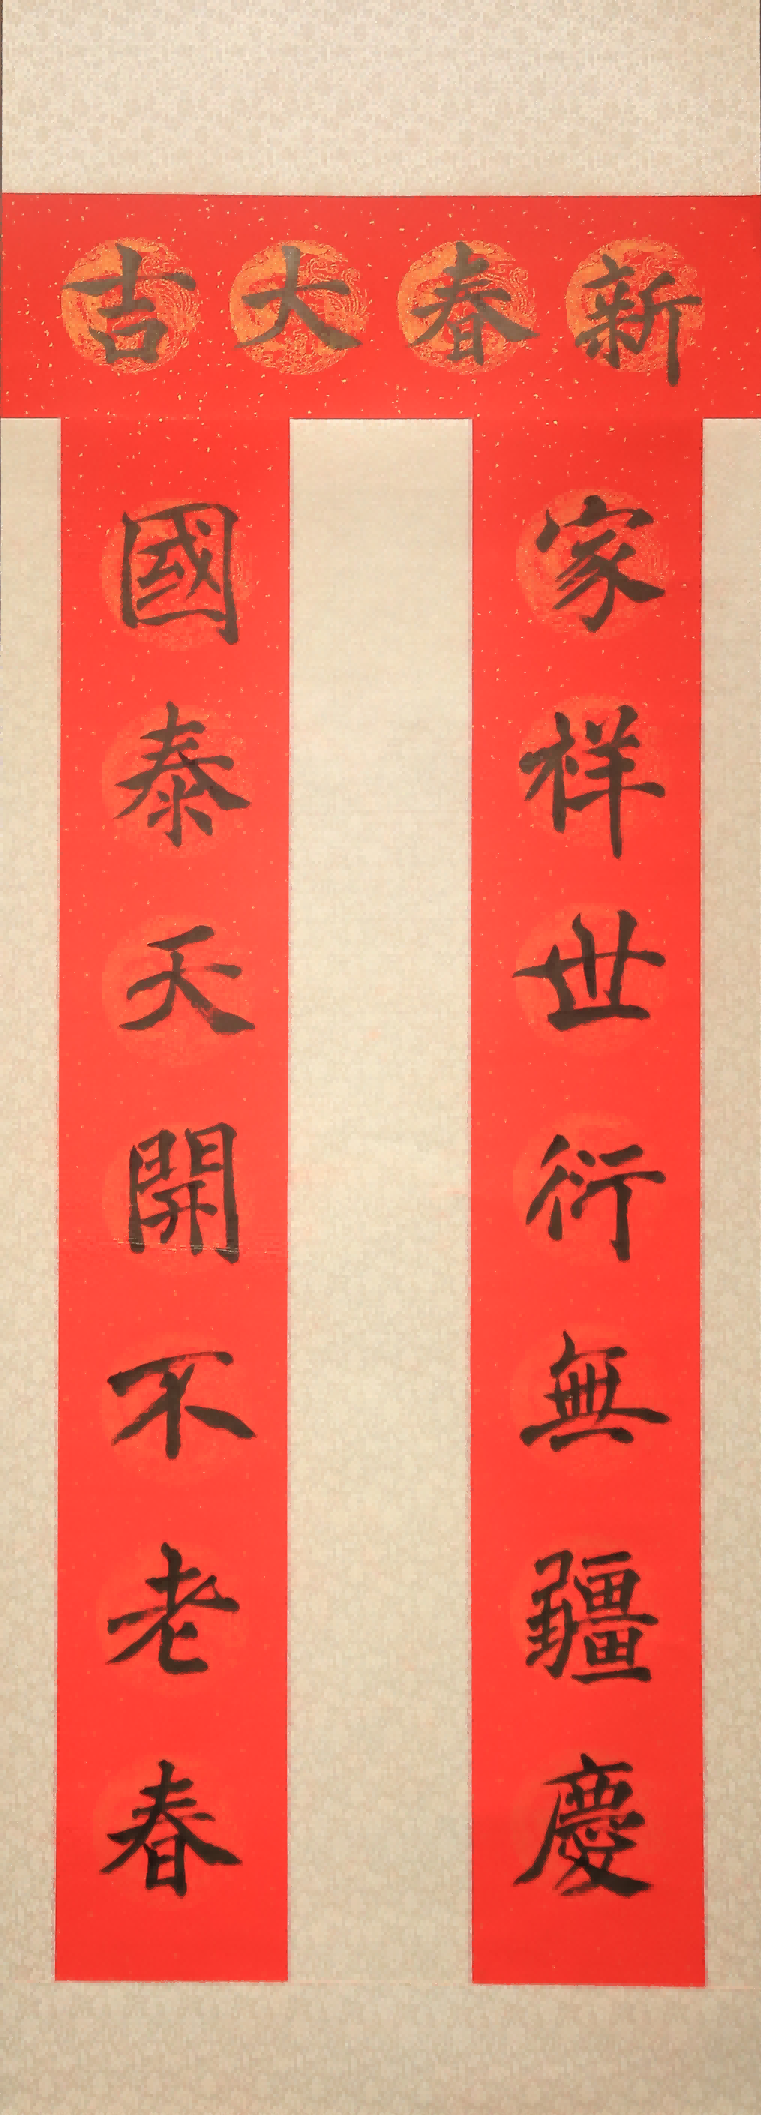 新春大吉
家祥世衍無疆慶
國泰天開不老春